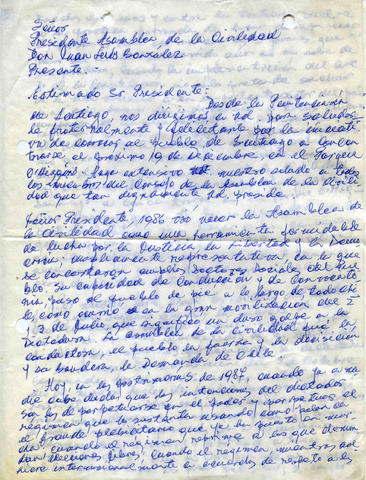 Señor
Presidente Asamblea de la Civilidad
Don Juan Luis González
Presente.-
Estimado Sr Presidente:
Desde la Penitenciaría
de Santiago, nos dirigimos a Ud para saludar
le fraternalmente y adelante por la iniciati
va de convocar al pueblo de Santiago a concen
trarse el próximo 19 de Diciembre, en el Parque
O'Higgins. Hago extensivo nuestro saludo a todos
los miembros del Consejo de la Asamblea de la Civili
dad que tan dignamente Ud. preside.
Señor Presidente, 1986 vio nacer la Asamblea de
la Civilidad como una herramienta formidable
de lucha por la Justicia la Libertad y la Demo
cracia; ampliamente representativa en la que
se concertaron amplios sectores sociales del Pue
blo. Su capacidad de Conducción y de Convocato
ria puso al pueblo de pie a lo largo de todo Chi
le, como ocurrió en la gran movilización del 2
y 3 de Julio, que significó un duro golpe a la
Dictadura. La Asamblea de la Civilidad fue la
conductora, el pueblo la fuerza y la decisión
y su bandera, la Demanda de Chile.
Hoy, en las postrimerías de 1987, cuando ya a na
die cabe duda que las intenciones del dictador
son las de perpetuarse en el poder y perpetuar el
régimen que lo sustenta usando como palanca
el fraude plebiscitario que ya ha puesto en mar
cha; cuando el régimen reprime a los que deman
dan elecciones libres; cuando el régimen, mientras ad
hiere internacionalmente a acuerdos de respeto a los